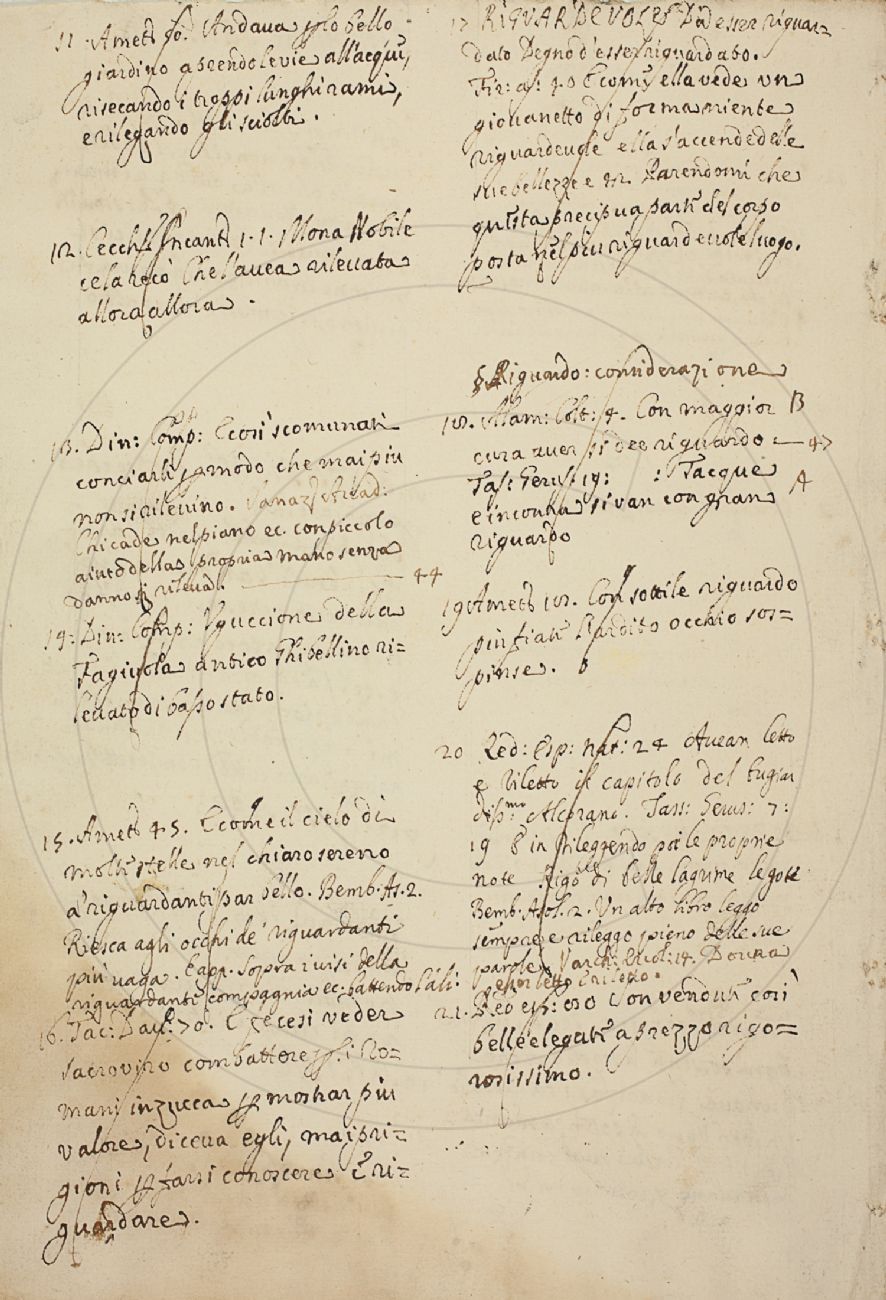 11. Amet. 50. Andava per lo bello
giardino ascendo le vie all'acqui,
risecando i troppi lunghi rami,
e rilegando gli sciolti.
12. Cecch. Incant. 1. 1. Mona Nobile
ce la recò Che l'avea rilevata
allora allora.
13. Din: Comp: E così scomunati
conciarli per modo che mai più
non si rilevino. Sanaz. Arcad:
Chi cade nel piano ec. con piccolo
aiuto della propria mano senza
danno si rileva. 44
14. Din: Comp: Uguccione della
Fagivola antico Ghibellino ri=
levato di basso stato.
15. Amet. 45. E come il cielo di
molte stelle nel chiaro sereno
a' riguardanti par bello. Bemb. As. 2.
Riesca agli occhi de' riguardanti
più vaga. Capp. Sopra i visi della
riguardante compagnia ec. battendo l'ali.
16. Tac: Dav. 70. E fecesi veder
Sacroviro combattere per i Ro=
mani in zucca per mostrar più
valore, diceva egli, mai pri=
gioni per farsi conoscere e ri=
guardare.
17 RIGUARDEVOLE Da esser riguar=
dato Degno d'esser riguardato.
Fir: as: 40 E com' ella vede un
giovanetto di forma niente
riguardevole ella s'accende delle
sue bellezze e Parendomi che
questa precipua parte del corpo
posta nel più riguardevole luogo.
§ Riguardo: considerazione
18. Alam: Colt: 4. Con maggior B
cura aver si dee riguardo 47
Tass: Gerus: 19: : Tacque A
e incontra si van con gran
riguardo
19 Amet. 18. Con sottile riguardo
più fiate l'ardito occhio sos=
pinse.
20 Red: Esp: nat: 24 Avean letto
e riletto il capitolo del bugiar
diss.mo Alcorano. Tass: Gerus: 7:
19 E in rileggendo poi le proprie
note Rigò di belle lagrime le gote
Bemb. Asol. 2. Un alto libro leggo
sempre e rileggo pieno delle sue
parole. Varch. Ercol: 14. Dovea
e riletto.
21. Red esp: 80 Son vendute così
belle e legate a prezzo rigo=
rosissimo.